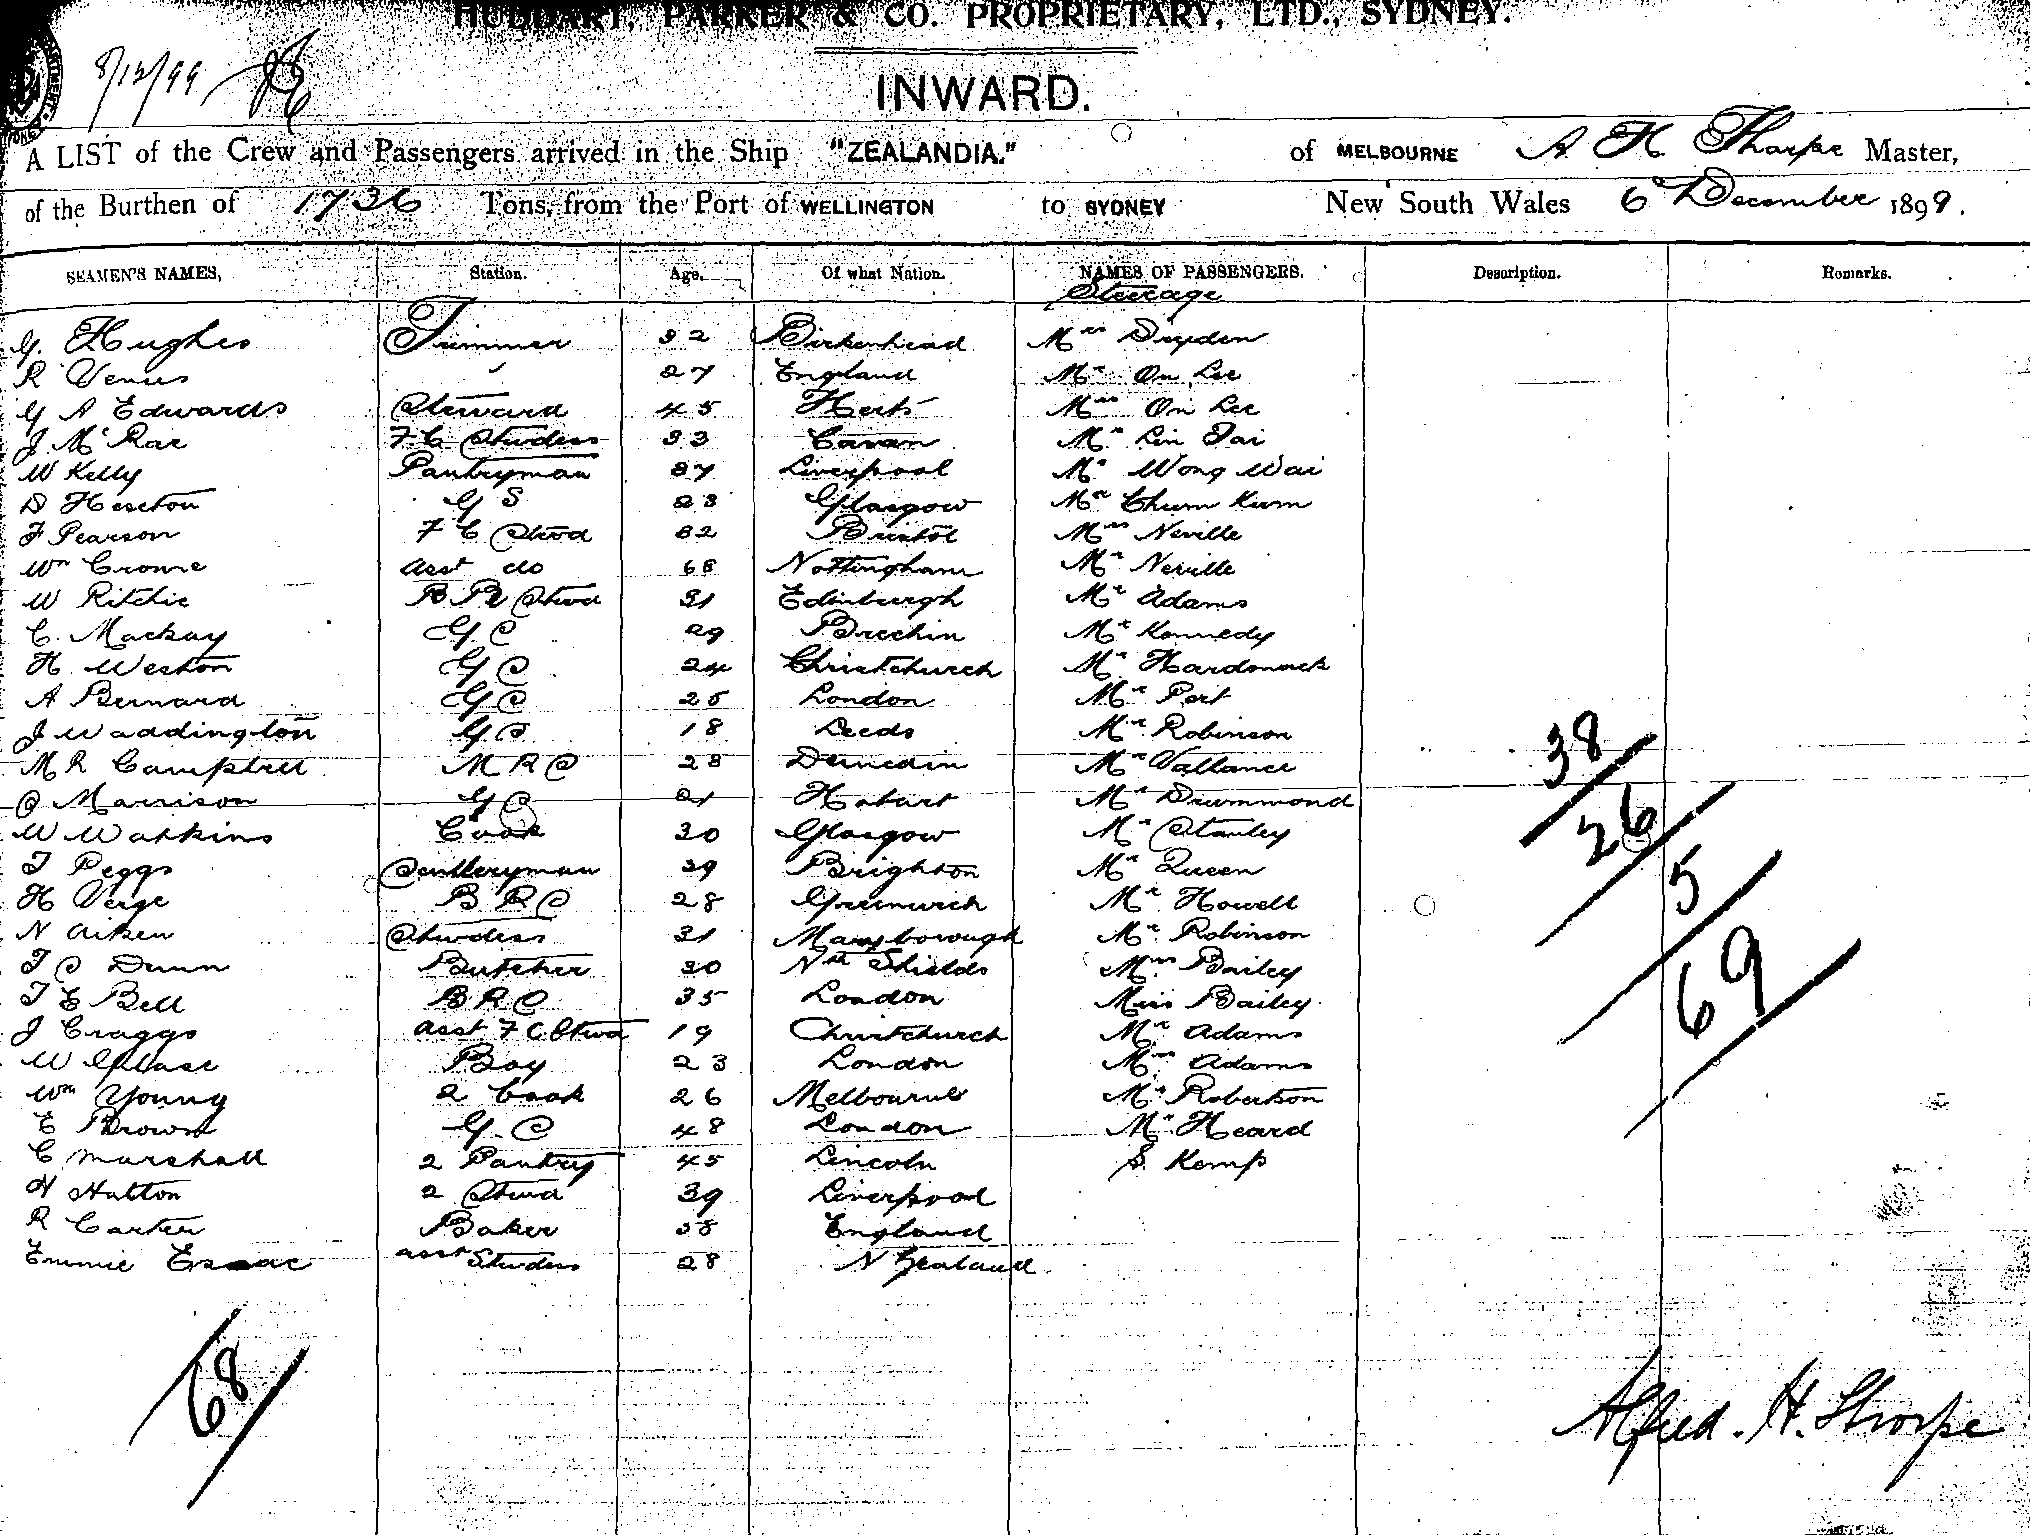 HUDDART, PARKER & CO. PROPRIETARY, LTD., SYDNEY.
8/12/99
INWARD.
A LIST of the Crew and Passengers arrived in the Ship "ZEALANDIA." of MELBOURNE A H Thorpe Master,
of the Burthen of 1736 Tons, from the Port of WELLINGTON to SYDNEY New South Wales 6 December 1899.
SEAMEN'S NAMES, Station. Age. Of what Nation. NAMES OF PASSENGERS. Description. Remarks.
Steerage
G. Hughes Trimmer 32 Birkenhead Mrs Dryden
R Venus 27 England Mr On Lee
G A Edwards Steward 45 Herts Mrs On Lee
J McRae F C Stwdess 33 Cavan Mr Lin Tai
W Kelly Pantryman 37 Liverpool Mr Wong Wai
D Heseton G S 23 Glasgow Mr Chum Kum
F Pearson F C Stwd 32 Bristol Mrs Neville
Wm Crowe asst do 68 Nottingham Mr Neville
W Ritchie B R Stwd 31 Edinburgh Mr Adams
C. Mackay G. S 29 Brechin Mr Kennedy
H. Weston G S 24 Christchurch Mr
A Bernard G S 25 London Mr Peit
J Waddington G S 18 Leeds Mr Robinson
M R Campbell M R S 28 Dunedin Mr Vallance
S Marrison G S 21 Hobart Mr Drummond
W Watkins Cook 30 Glasgow Mr Stanley
T Peggs Sculleryman 39 Brighton Mr Queen
H Verge B R S 28 Greenwich Mr Howell
N Aiken Stwdess 31 Maryborough Mr Robinson
T S Dunn Butcher 30 Nth Shields Mrs Bailey
T E Bell B R S 35 London Miss Bailey
J Craggs asst F C Stwd 19 Christchurch Mr Adams
W Boy 23 London Mrs Adams
Wm Young 2 Cook 26 Melbourne Mr Robertson
E Brown G. S 48 London Mr Heard
C Marshall 2 Pantry 45 Lincoln S. Kemp
H Hutton 2 Stwd 39 Liverpool
R Carter Baker 38 England
Emmie Essac asst Stwdess 28 N Zealand.
38
26
5
69
68
Alfred. H. Thorpe